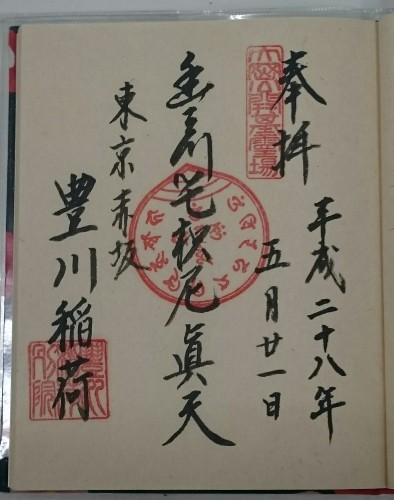 奉拝
平成二十八年
五月廿一日
豊川吒枳尼眞天
東京赤坂
豊川稲荷